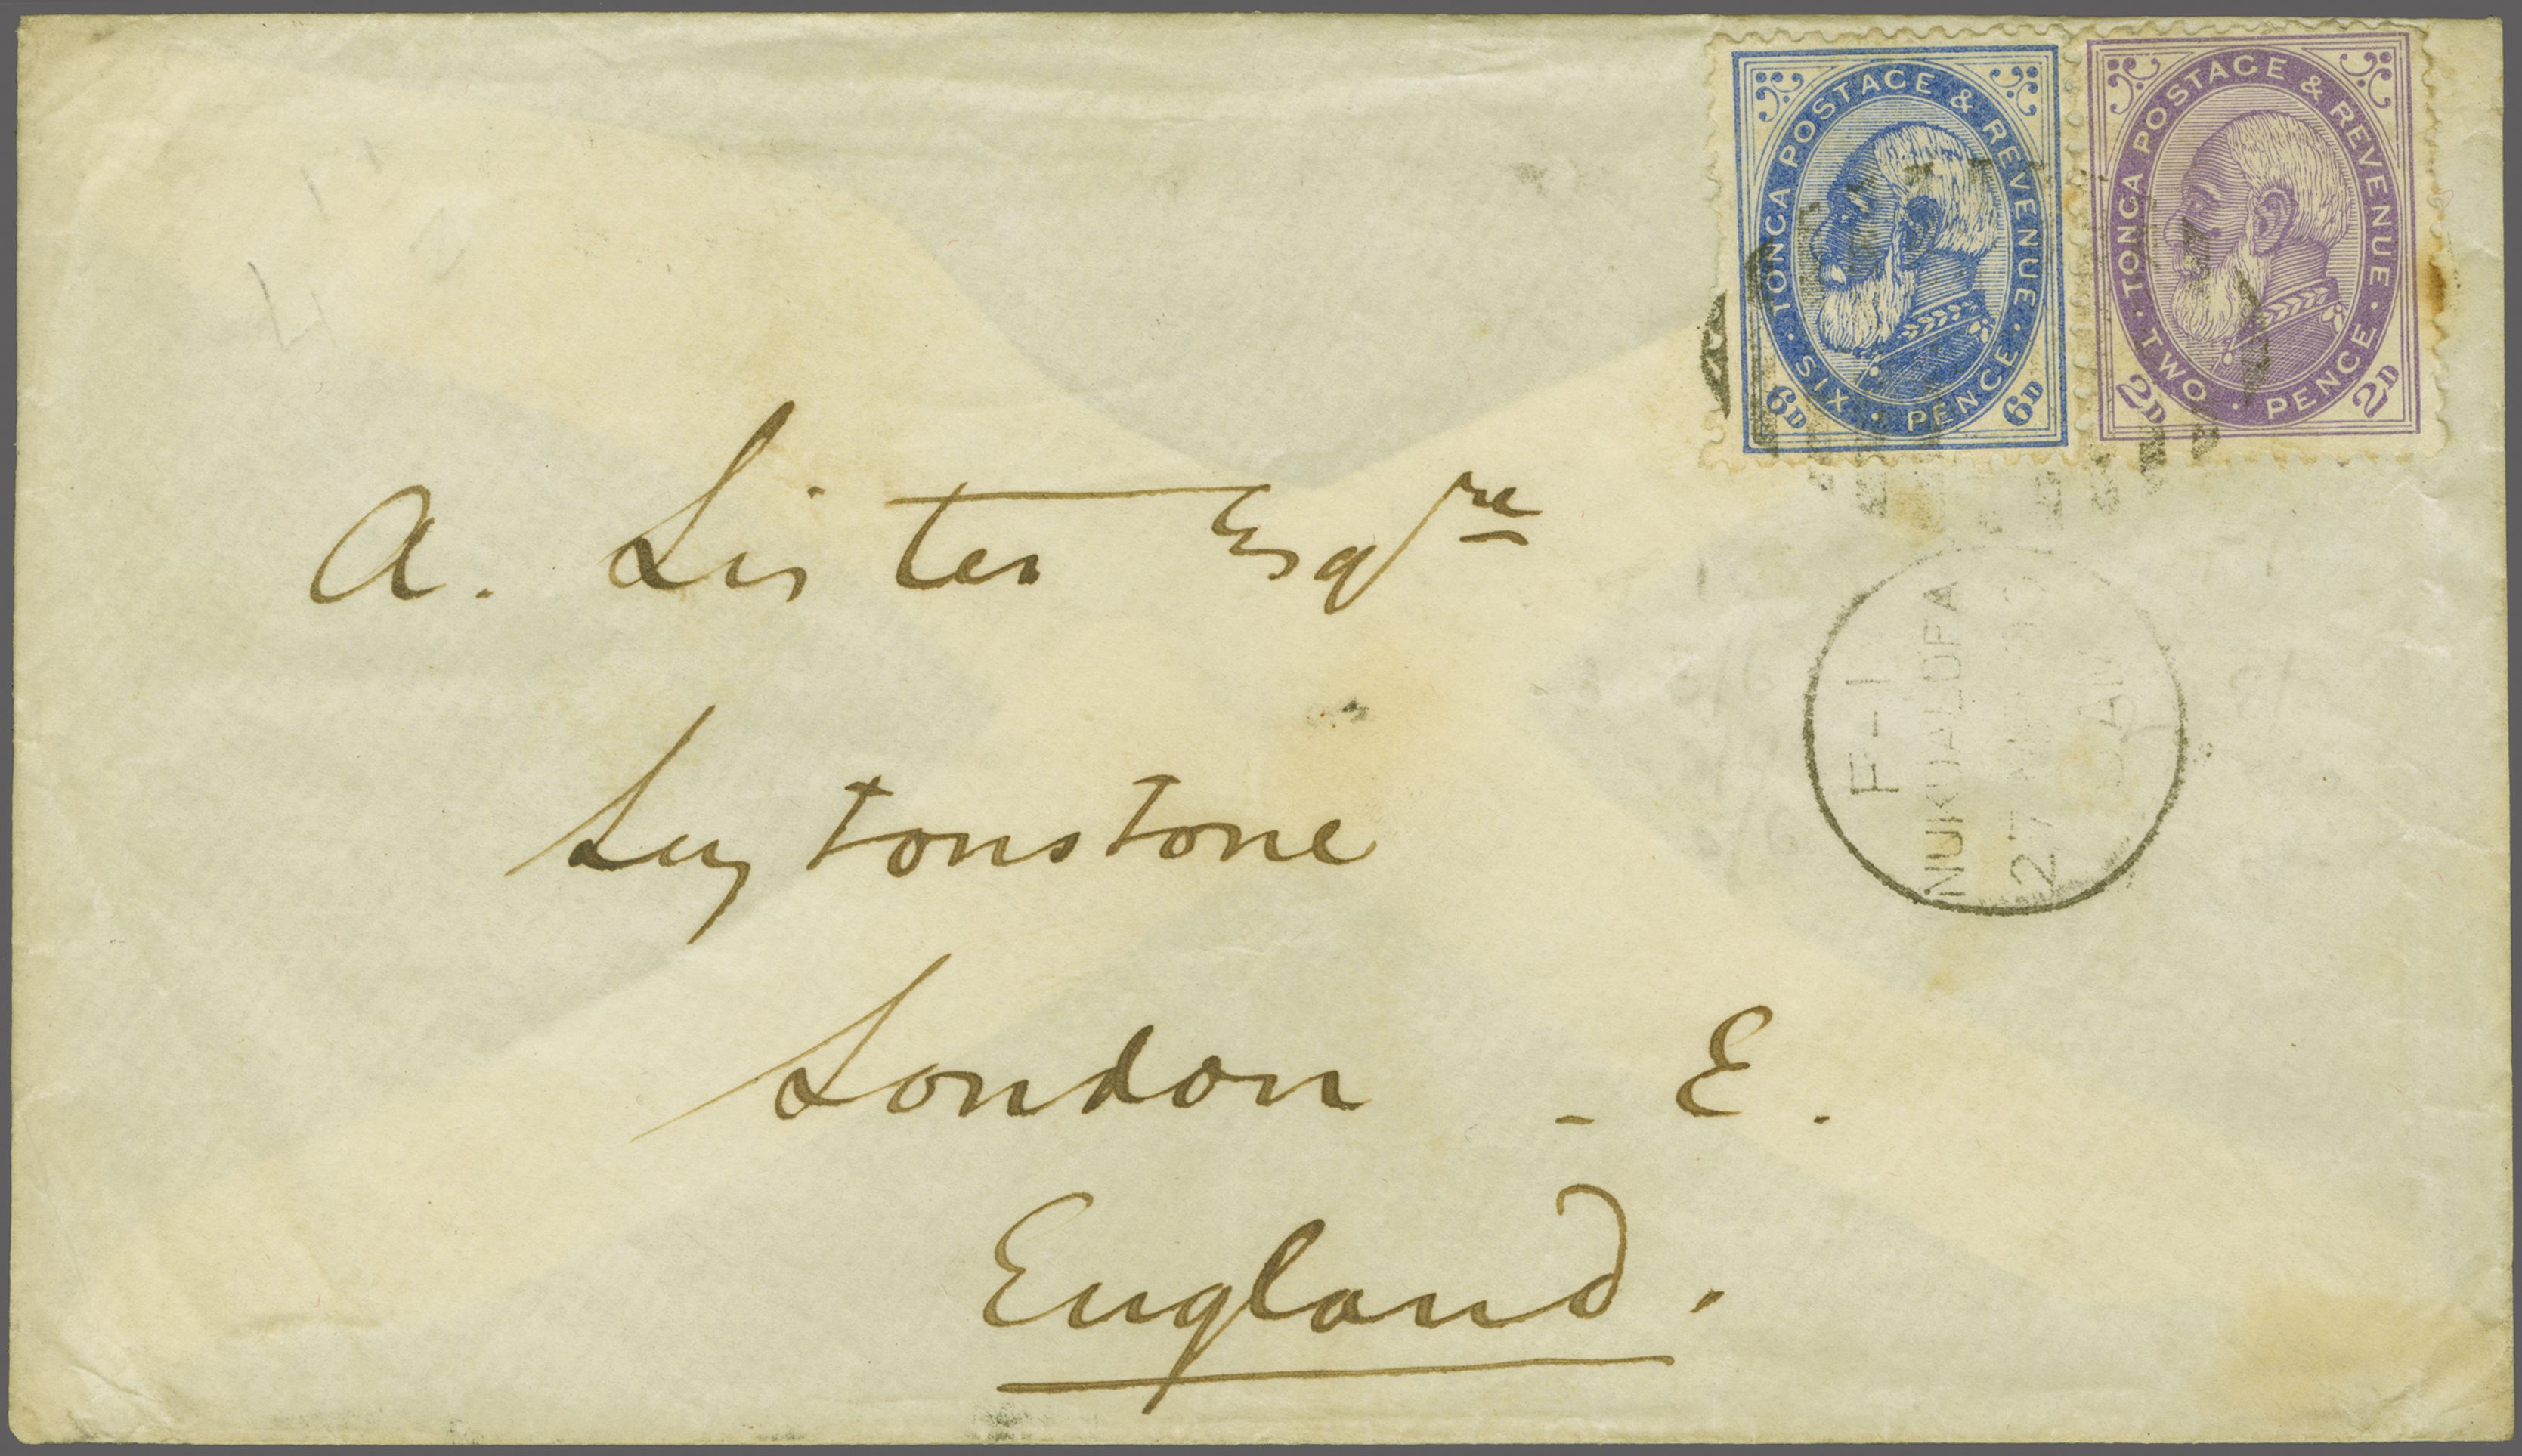 TONGA POSTAGE & REVENUE
SIX PENCE
6D 6D
TONGA POSTAGE & REVENUE
TWO PENCE
2D 2D
A. Lister Esqre
Leytonstone
London - E.
England.
F-1
NUKUALOFA
27